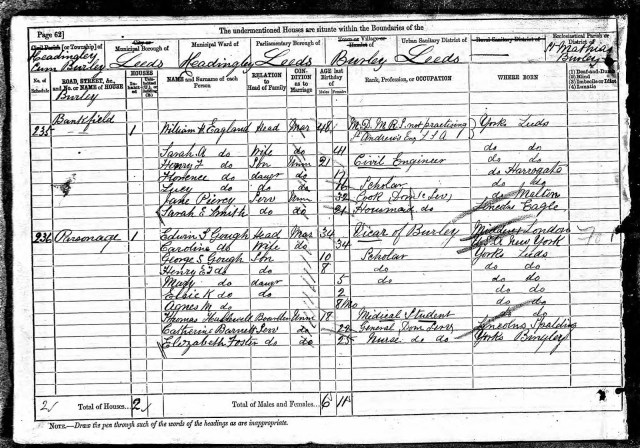 The undermentioned Houses are situate within the Boundaries of the
Page 62]
Civil Parish [or Township] of
Headingley Cum Burley
City or Municipal Borough of
Leeds
Municipal Ward of
Headingley
Parliamentary Borough of
Leeds
Town or Village or Hamlet of
Burley
Urban Sanitary District of
Leeds
Rural Sanitary District of
Ecclesiastical Parish or District of
St Mathias Burley
No. of Schedule
ROAD, STREET, &c., and No. or NAME of HOUSE
HOUSES
NAME and Surname of each Person
RELATION to Head of Family
CONDITION as to Marriage
AGE last Birthday of
Males
Females
Rank, Profession, or OCCUPATION
WHERE BORN
(1) Deaf-and-Dumb
(2) Blind
(3) Imbecile or Idiot
(4) Lunatic
Burley
235 Bankfield 1 William H Eagland Head Mar 48 M.D. M.R. not practising Yorks Leeds
St Andrews
Sarah A do Wife do 41 do do
Henry F do Son Unm 21 Civil Engineer do do
Florence do daur do 17 do Harrogate
Lucy do do do 16 Scholar do do
Jane Piercy Serv Unm 32 Cook (Dom Serv) do Malton
Sarah E Smith do do 21 Housmaid do Lincoln Eagle
236 Parsonage 1 Edwin S Gough Head Mar 34 Vicar of Burley Middlesex London
Caroline do Wife do 34 New York
George S Gough Son 10 Scholar Yorks Leeds
Henry E J do do 8 do do do
Mary do daur 5 do do do
Elsie K do do 2 do do
Agnes M do do 8 Mo do do
Thomas Boarder Unm 19 Medical Student do do
Catherine Barnett Serv do 22 General Dom Serv Lincolns Spalding
Elizabeth Foster do do 25 Nurse do do Yorks Bingley
2 Total of Houses 2 Total of Males and Females 6 11
NOTE.—Draw the pen through such of the words of the headings as are inappropriate.